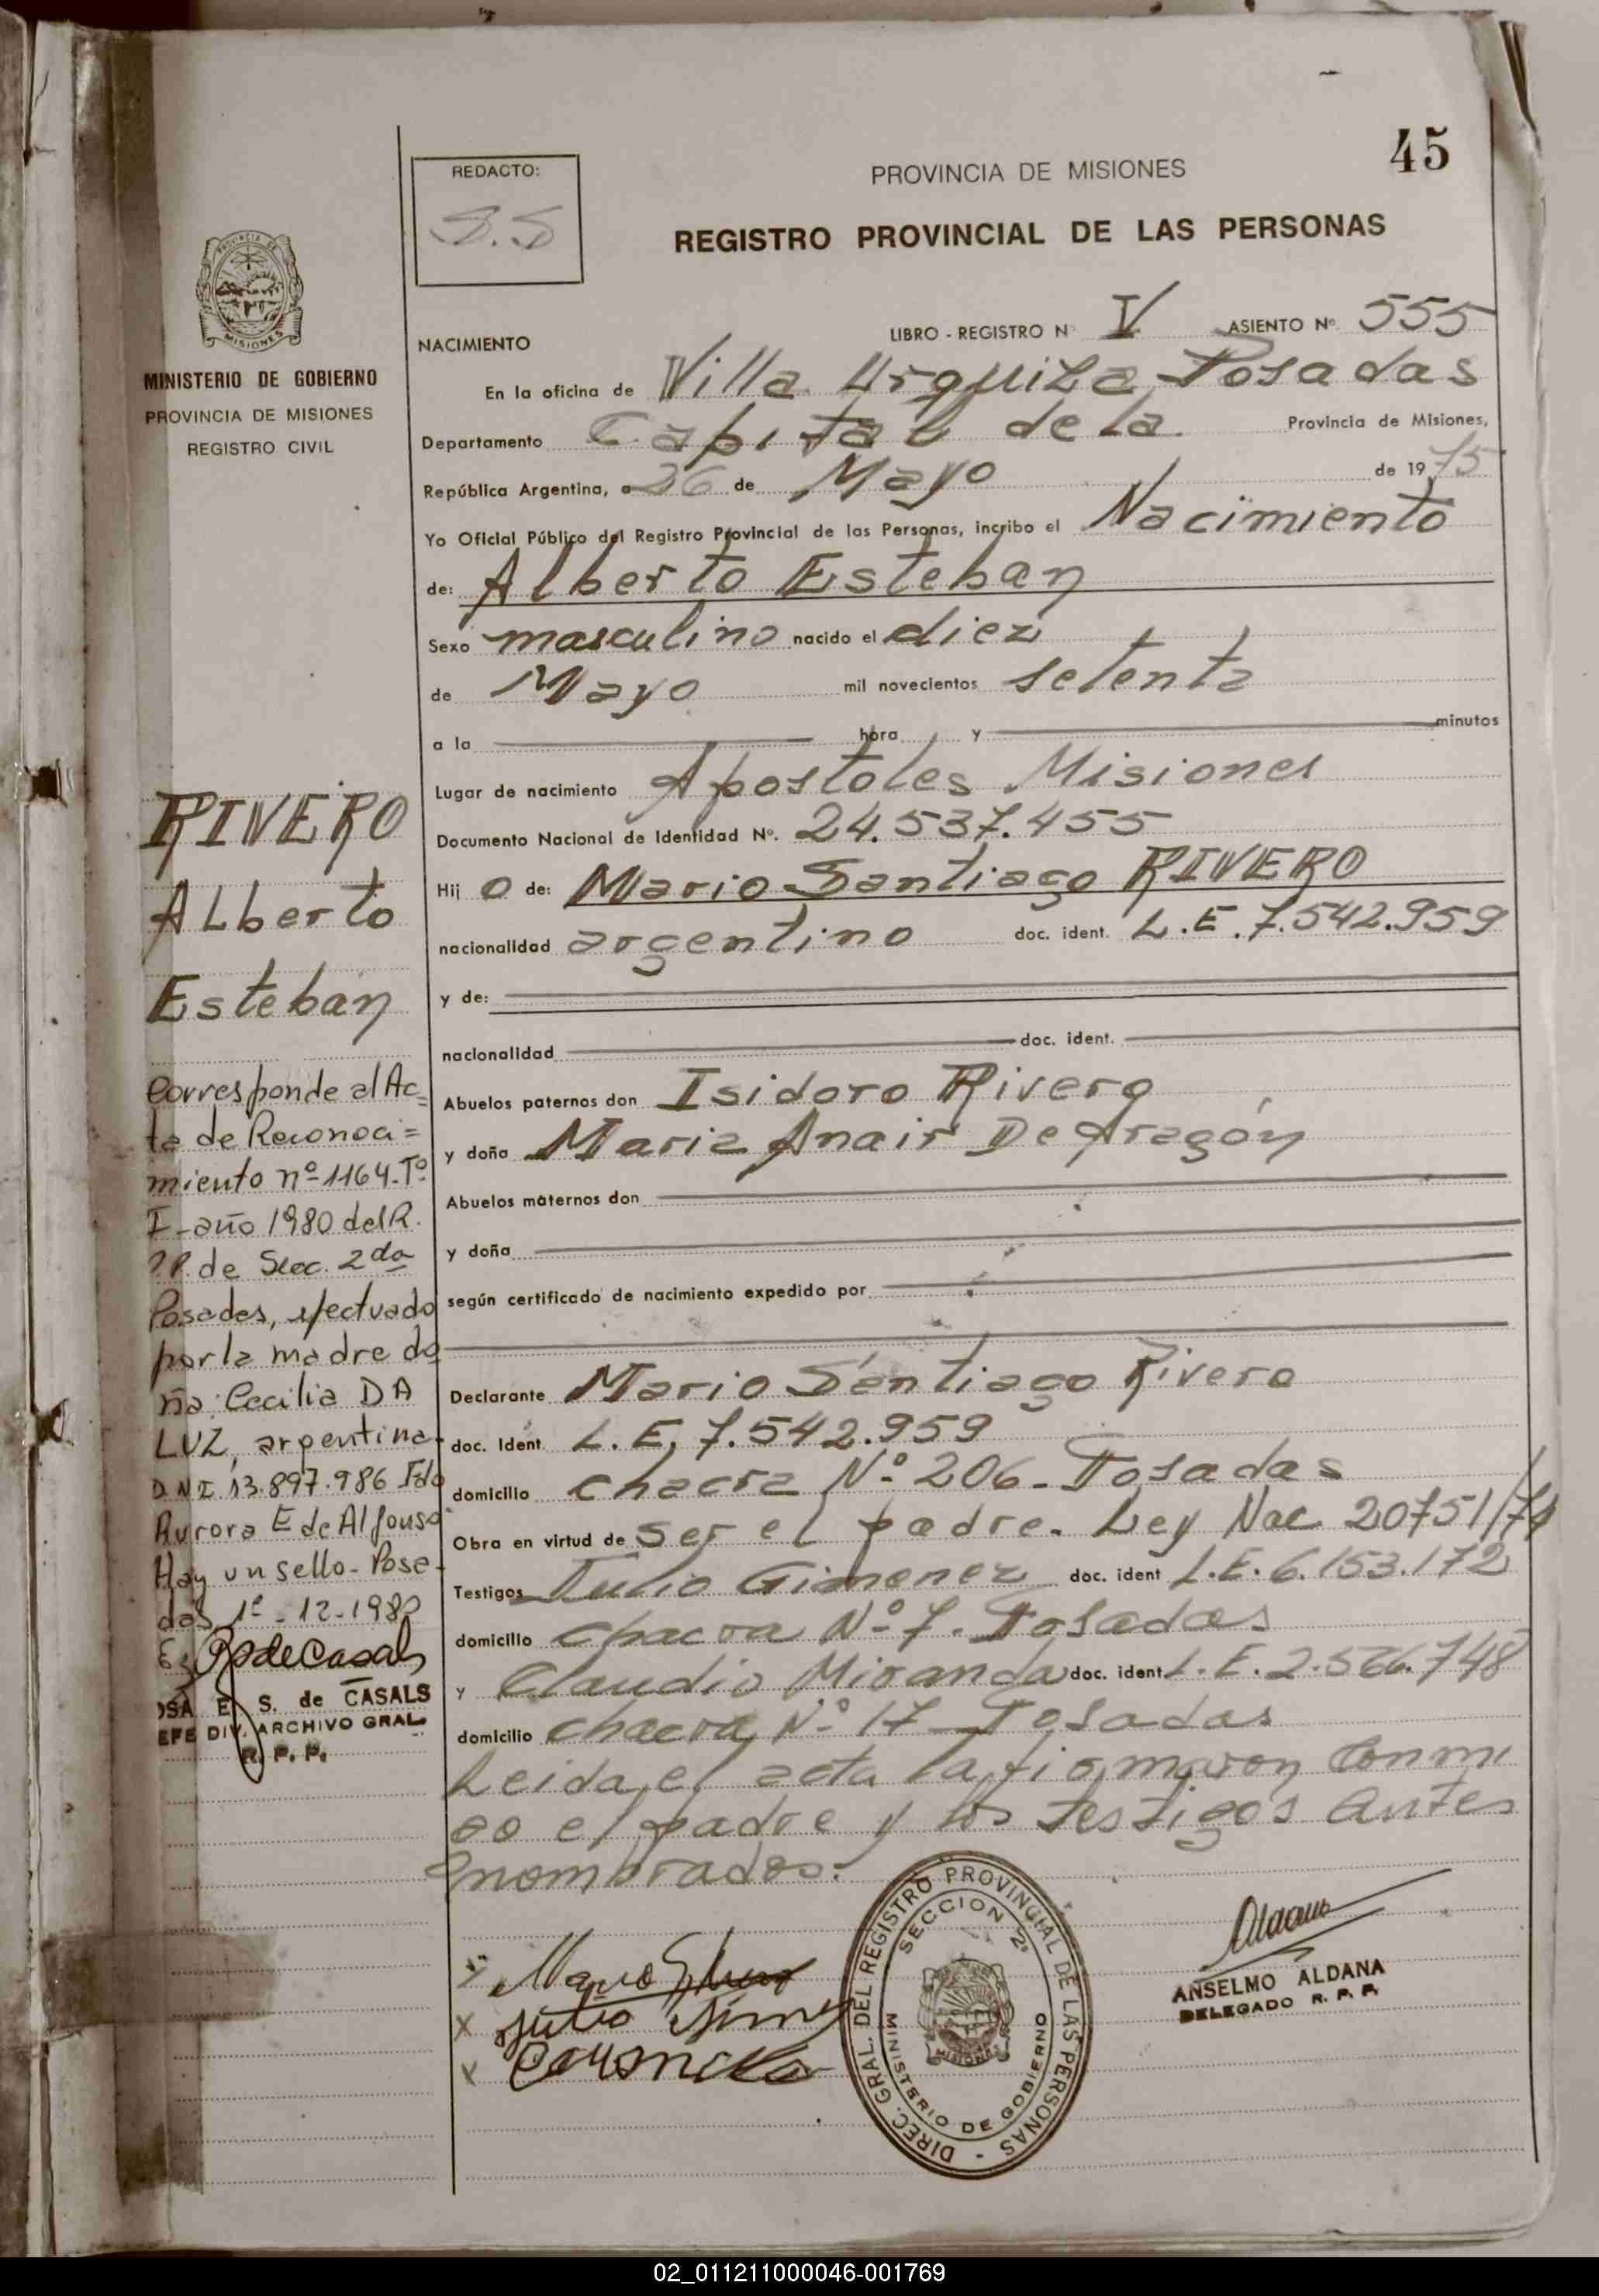 45
REDACTO:
S.S
PROVINCIA DE MISIONES
REGISTRO PROVINCIAL DE LAS PERSONAS
PROVINCIA DE
MISIONES
MINISTERIO DE GOBIERNO
PROVINCIA DE MISIONES
REGISTRO CIVIL
NACIMIENTO LIBRO - REGISTRO Nº V ASIENTO Nº 555
En la oficina de Villa Urquiza Posadas
Departamento Capital de la Provincia de Misiones,
República Argentina, a 26 de Mayo de 1975
Yo Oficial Público del Registro Provincial de las Personas, incribo el Nacimiento
de: Alberto Esteban
Sexo masculino nacido el diez
de Mayo mil novecientos setenta
a la hora y minutos
Lugar de nacimiento Apostoles Misiones
Documento Nacional de Identidad Nº. 24.537.455
Hij o de: Mario Santiago RIVERO
nacionalidad argentino doc. ident. L.E. 7.542.959
y de:
nacionalidad doc. ident.
Abuelos paternos don Isidoro Rivero
y doña Maria Anair De Aragón
Abuelos maternos don
y doña
según certificado de nacimiento expedido por
Declarante Mario Santiago Rivero
doc. Ident L.E. 7.542.959
domicilio chacra Nº 206 - Posadas
Obra en virtud de ser el padre. Ley Nac 20751/74
Testigos Julio Gimenez doc. ident L.E. 6.153.172
domicilio chacra Nº 7. Posadas
y Claudio Miranda doc. ident. L.E. 2.566.748
domicilio chacra Nº 17 - Posadas
Leida el acta la firmaron conmi
go el padre y los testigos antes
nombrados.
RIVERO
ALberto
Esteban
Corresponde al Ac=
ta de Reconoci=
miento nº 1164-Tº
I-año 1980 del R.
P.P. de Secc. 2da
Posadas, efectuado
por la madre do
ña: Cecilia DA
LUZ, argentina
D.N.I 13.897.986 Fdo
Aurora E de Alfonso
Hay un sello - Posa-
das 1º-12-1980
OSA E. S. de CASALS
EFE DIV. ARCHIVO GRAL.
R. P. P.
X
X Julio
X
DIREC. GRAL. DEL REGISTRO PROVINCIAL DE LAS PERSONAS -
SECCION 2ª
MINISTERIO DE GOBIERNO
MISIONES
ANSELMO ALDANA
DELEGADO R. P. P.
02_011211000046-001769